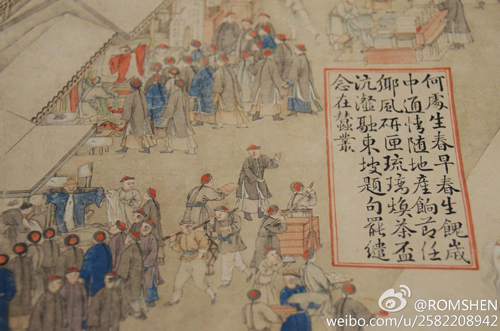 何處生春早春生餽歲
中通情随地產餉莭任
鄉風研匣琉璃煥茶盃
沆瀣融東坡題句罷繾
念在蠶叢
@ROMSHEN
weibo.com/u/2582208942